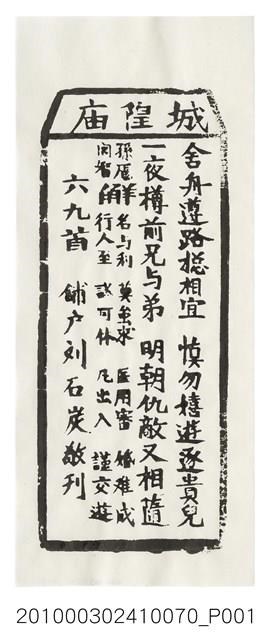 城隍庙
舍舟遵路搃相宜 慎勿嬉遊逐貴兒
一夜樽前兄与弟 明朝仇敵又相隨
孫龐鬪智 名与利 莫牟求 医用審 婚难成
行人至 訟可休 凡出入 謹交遊
六九首 鋪户刘石炭敬刊
201000302410070_P001